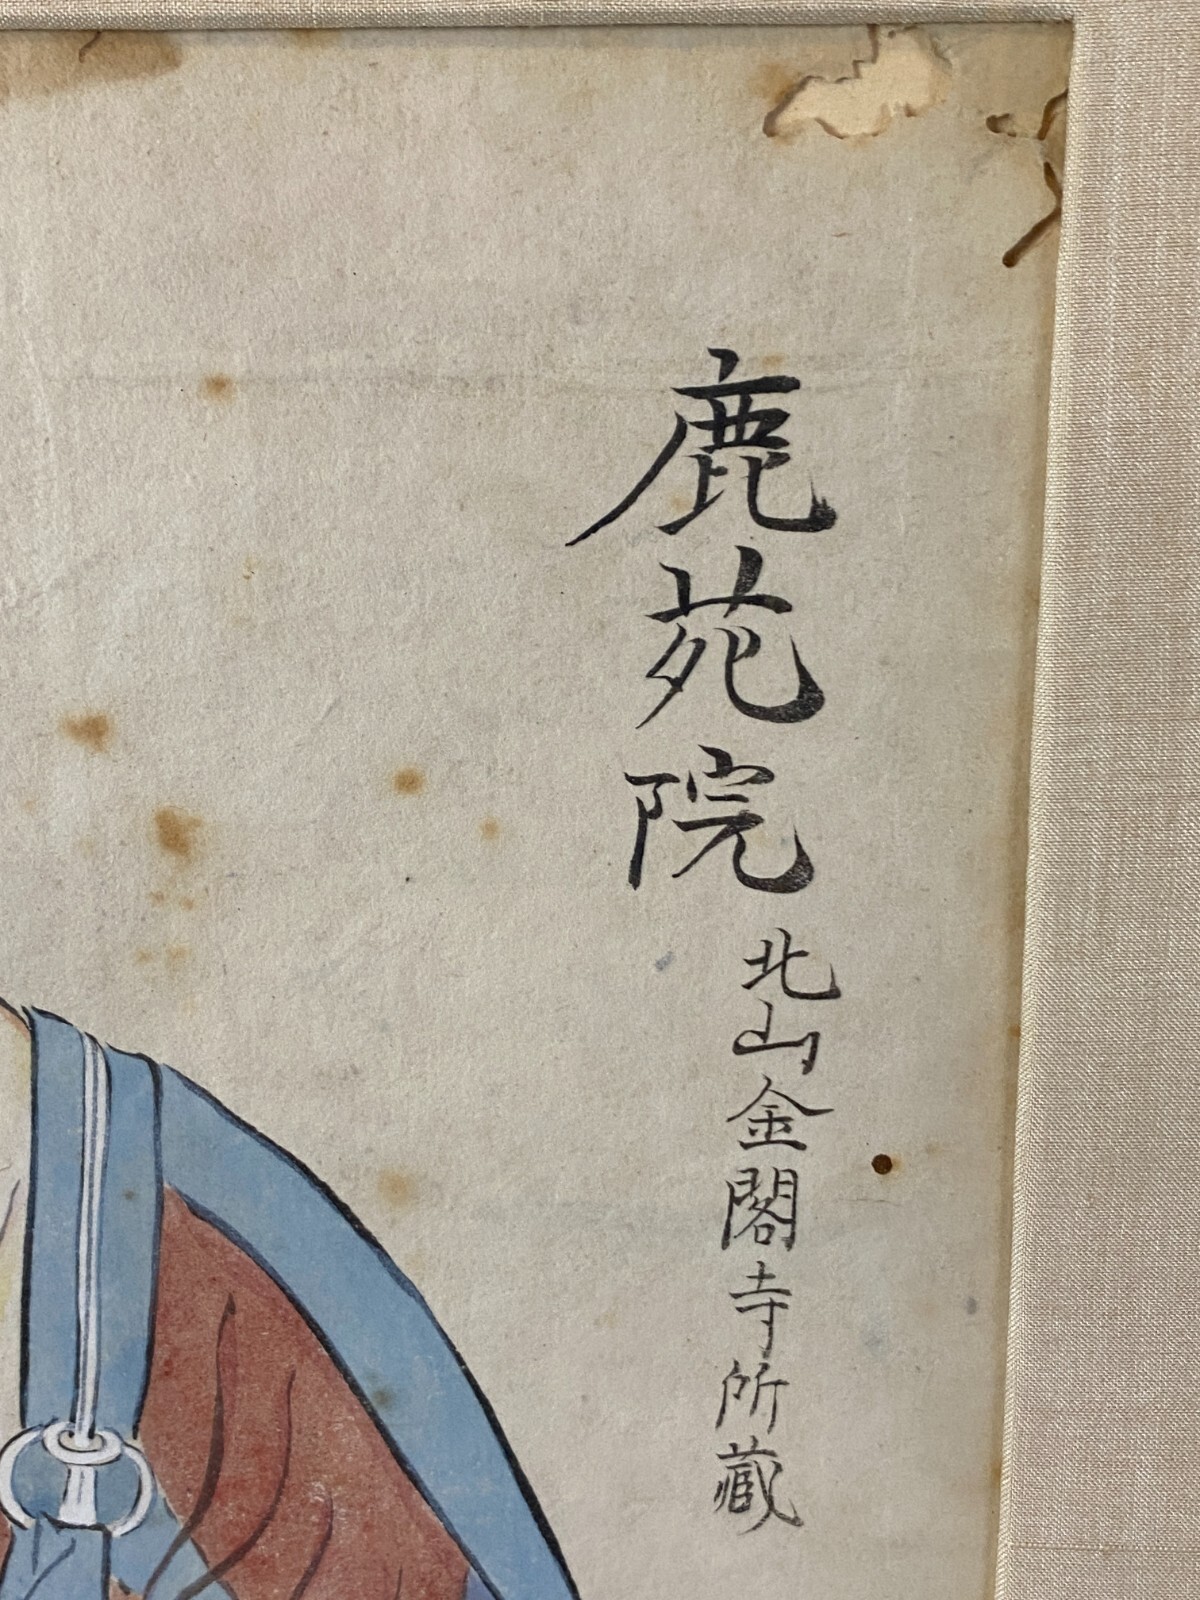 鹿苑院
北山金閣寺所蔵